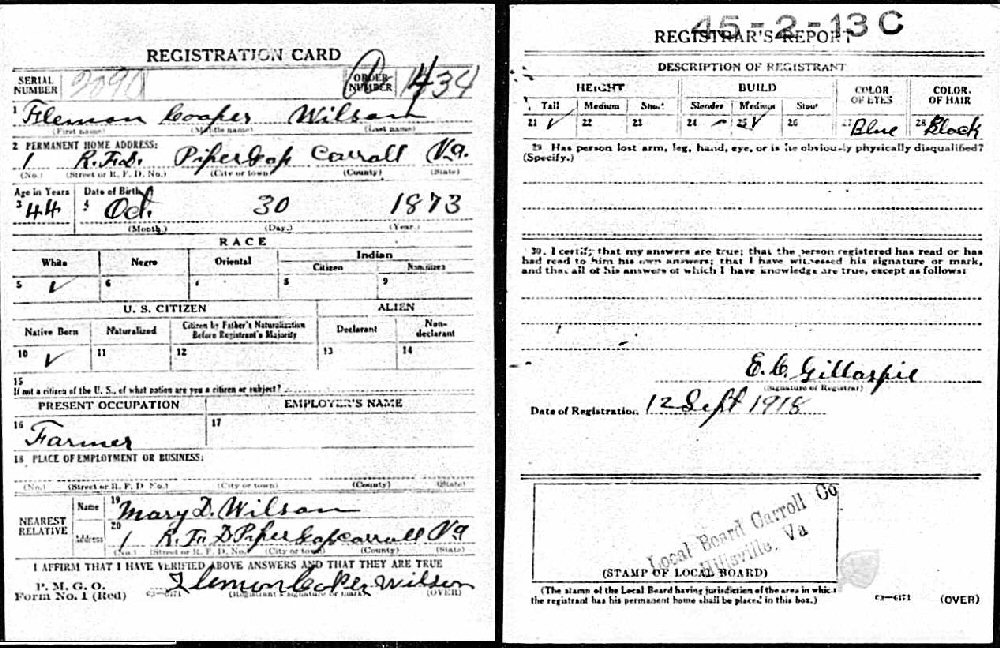 REGISTRATION CARD
SERIAL NUMBER 3090 ORDER NUMBER 434
1 Flemon Cooper Wilson
(First name) (Middle name) (Last name)
2 PERMANENT HOME ADDRESS:
1 R.F.D. Pipers Gap Carroll Va.
(No.) (Street or R. F. D. No.) (City or town) (County) (State)
Age in Years Date of Birth
3 44 4 Oct. 30 1873
(Month.) (Day.) (Year.)
RACE
White Negro Oriental Indian
Citizen Noncitizen
5 ✓ 6 7 8 9
U. S. CITIZEN ALIEN
Native Born Naturalized Citizen by Father's Naturalization Before Registrant's Majority Declarant Non-declarant
10 ✓ 11 12 13 14
15
If not a citizen of the U. S., of what nation are you a citizen or subject?
PRESENT OCCUPATION EMPLOYER'S NAME
16 Farmer 17
18 PLACE OF EMPLOYMENT OR BUSINESS:
(No.) (Street or R. F. D. No.) (City or town) (County) (State)
NEAREST RELATIVE
Name 19 Mary D. Wilson
Address 20 1 R. F. D Pipers Gap Carroll Va
(No.) (Street or R. F. D. No.) (City or town) (County) (State)
I AFFIRM THAT I HAVE VERIFIED ABOVE ANSWERS AND THAT THEY ARE TRUE
P. M. G. O.
Form No. 1 (Red) 03—6171 Flemon Cooper Wilson
(Registrant's signature or mark) (OVER)
45-2-13 C
REGISTRAR'S REPORT
DESCRIPTION OF REGISTRANT
HEIGHT BUILD COLOR OF EYES COLOR OF HAIR
Tall Medium Short Slender Medium Stout
21 ✓ 22 23 24 25 ✓ 26 27 Blue 28 Black
29 Has person lost arm, leg, hand, eye, or is he obviously physically disqualified?
(Specify.)
30. I certify that my answers are true; that the person registered has read or has
had read to him his own answers; that I have witnessed his signature or mark,
and that all of his answers of which I have knowledge are true, except as follows:
E. C. Gillaspie
(Signature of Registrar)
Date of Registration 12 Sept 1918
Local Board Carroll Co
Hillsville, Va
(STAMP OF LOCAL BOARD)
(The stamp of the Local Board having jurisdiction of the area in which
the registrant has his permanent home shall be placed in this box.)
03—6171 (OVER)